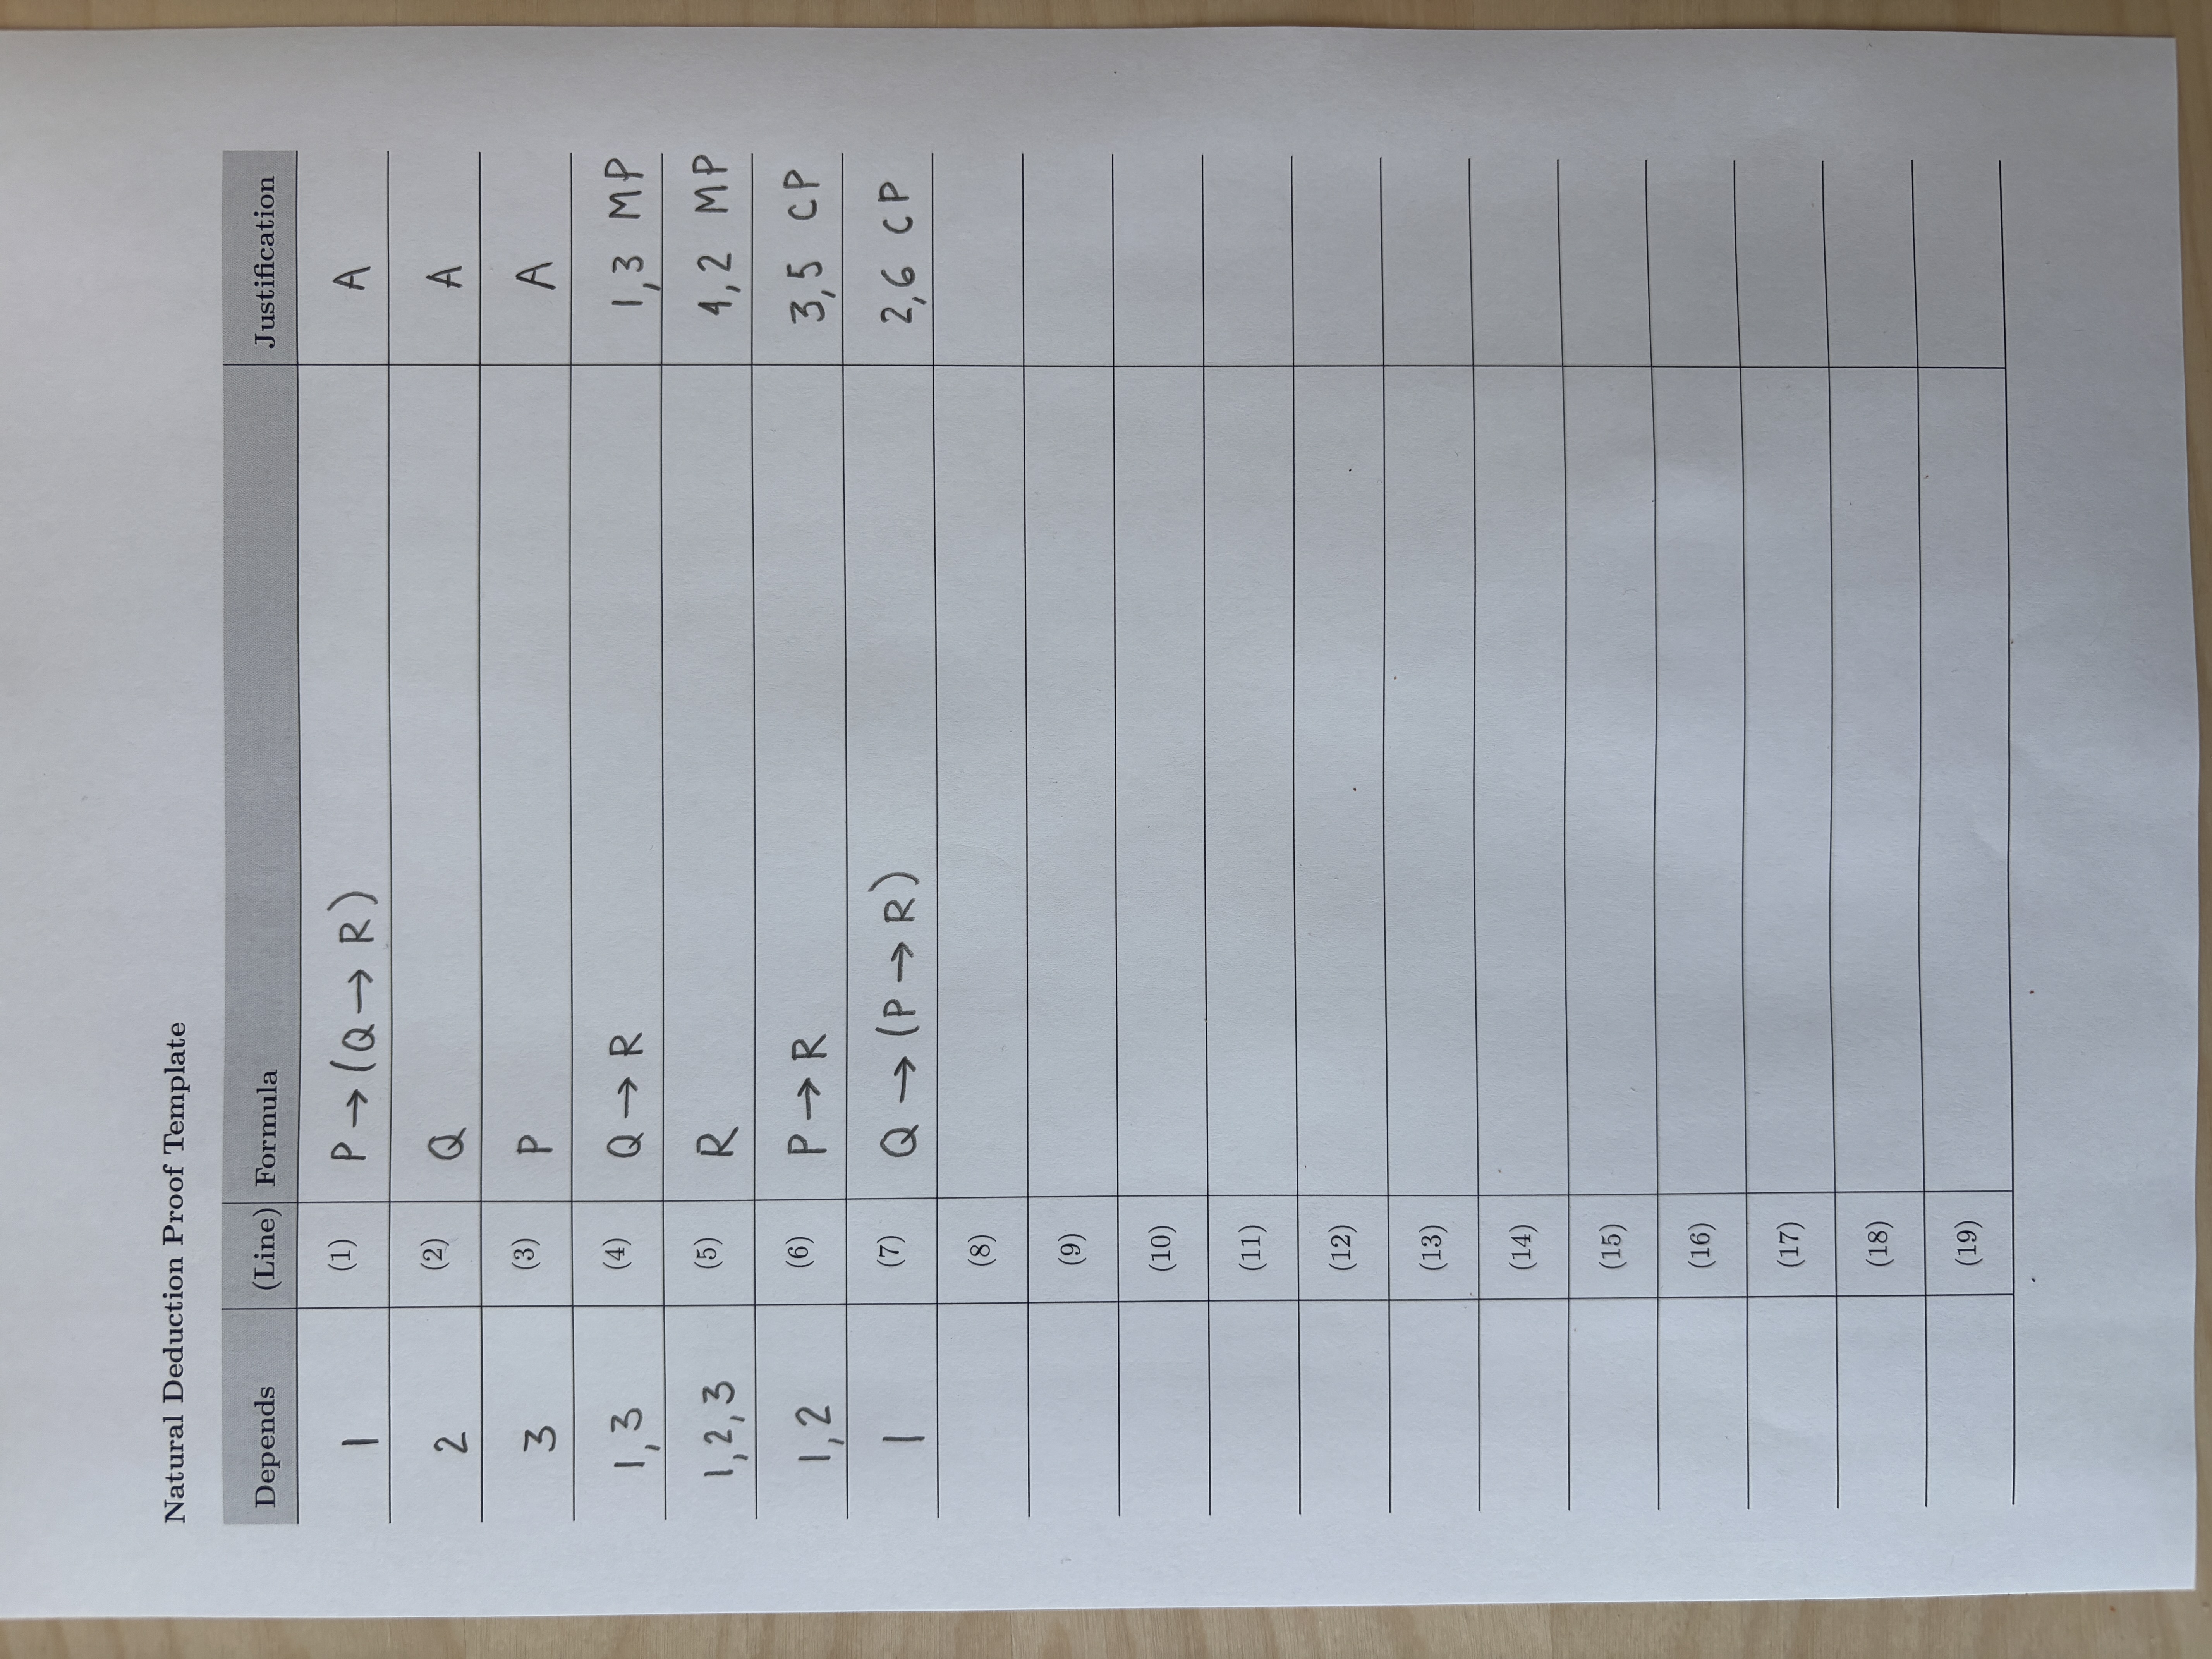 Natural Deduction Proof Template
Depends (Line) Formula Justification
1 (1) P → (Q → R) A
2 (2) Q A
3 (3) P A
1,3 (4) Q → R 1,3 MP
1,2,3 (5) R 4,2 MP
1,2 (6) P → R 3,5 CP
1 (7) Q → (P → R) 2,6 CP
(8)
(9)
(10)
(11)
(12)
(13)
(14)
(15)
(16)
(17)
(18)
(19)